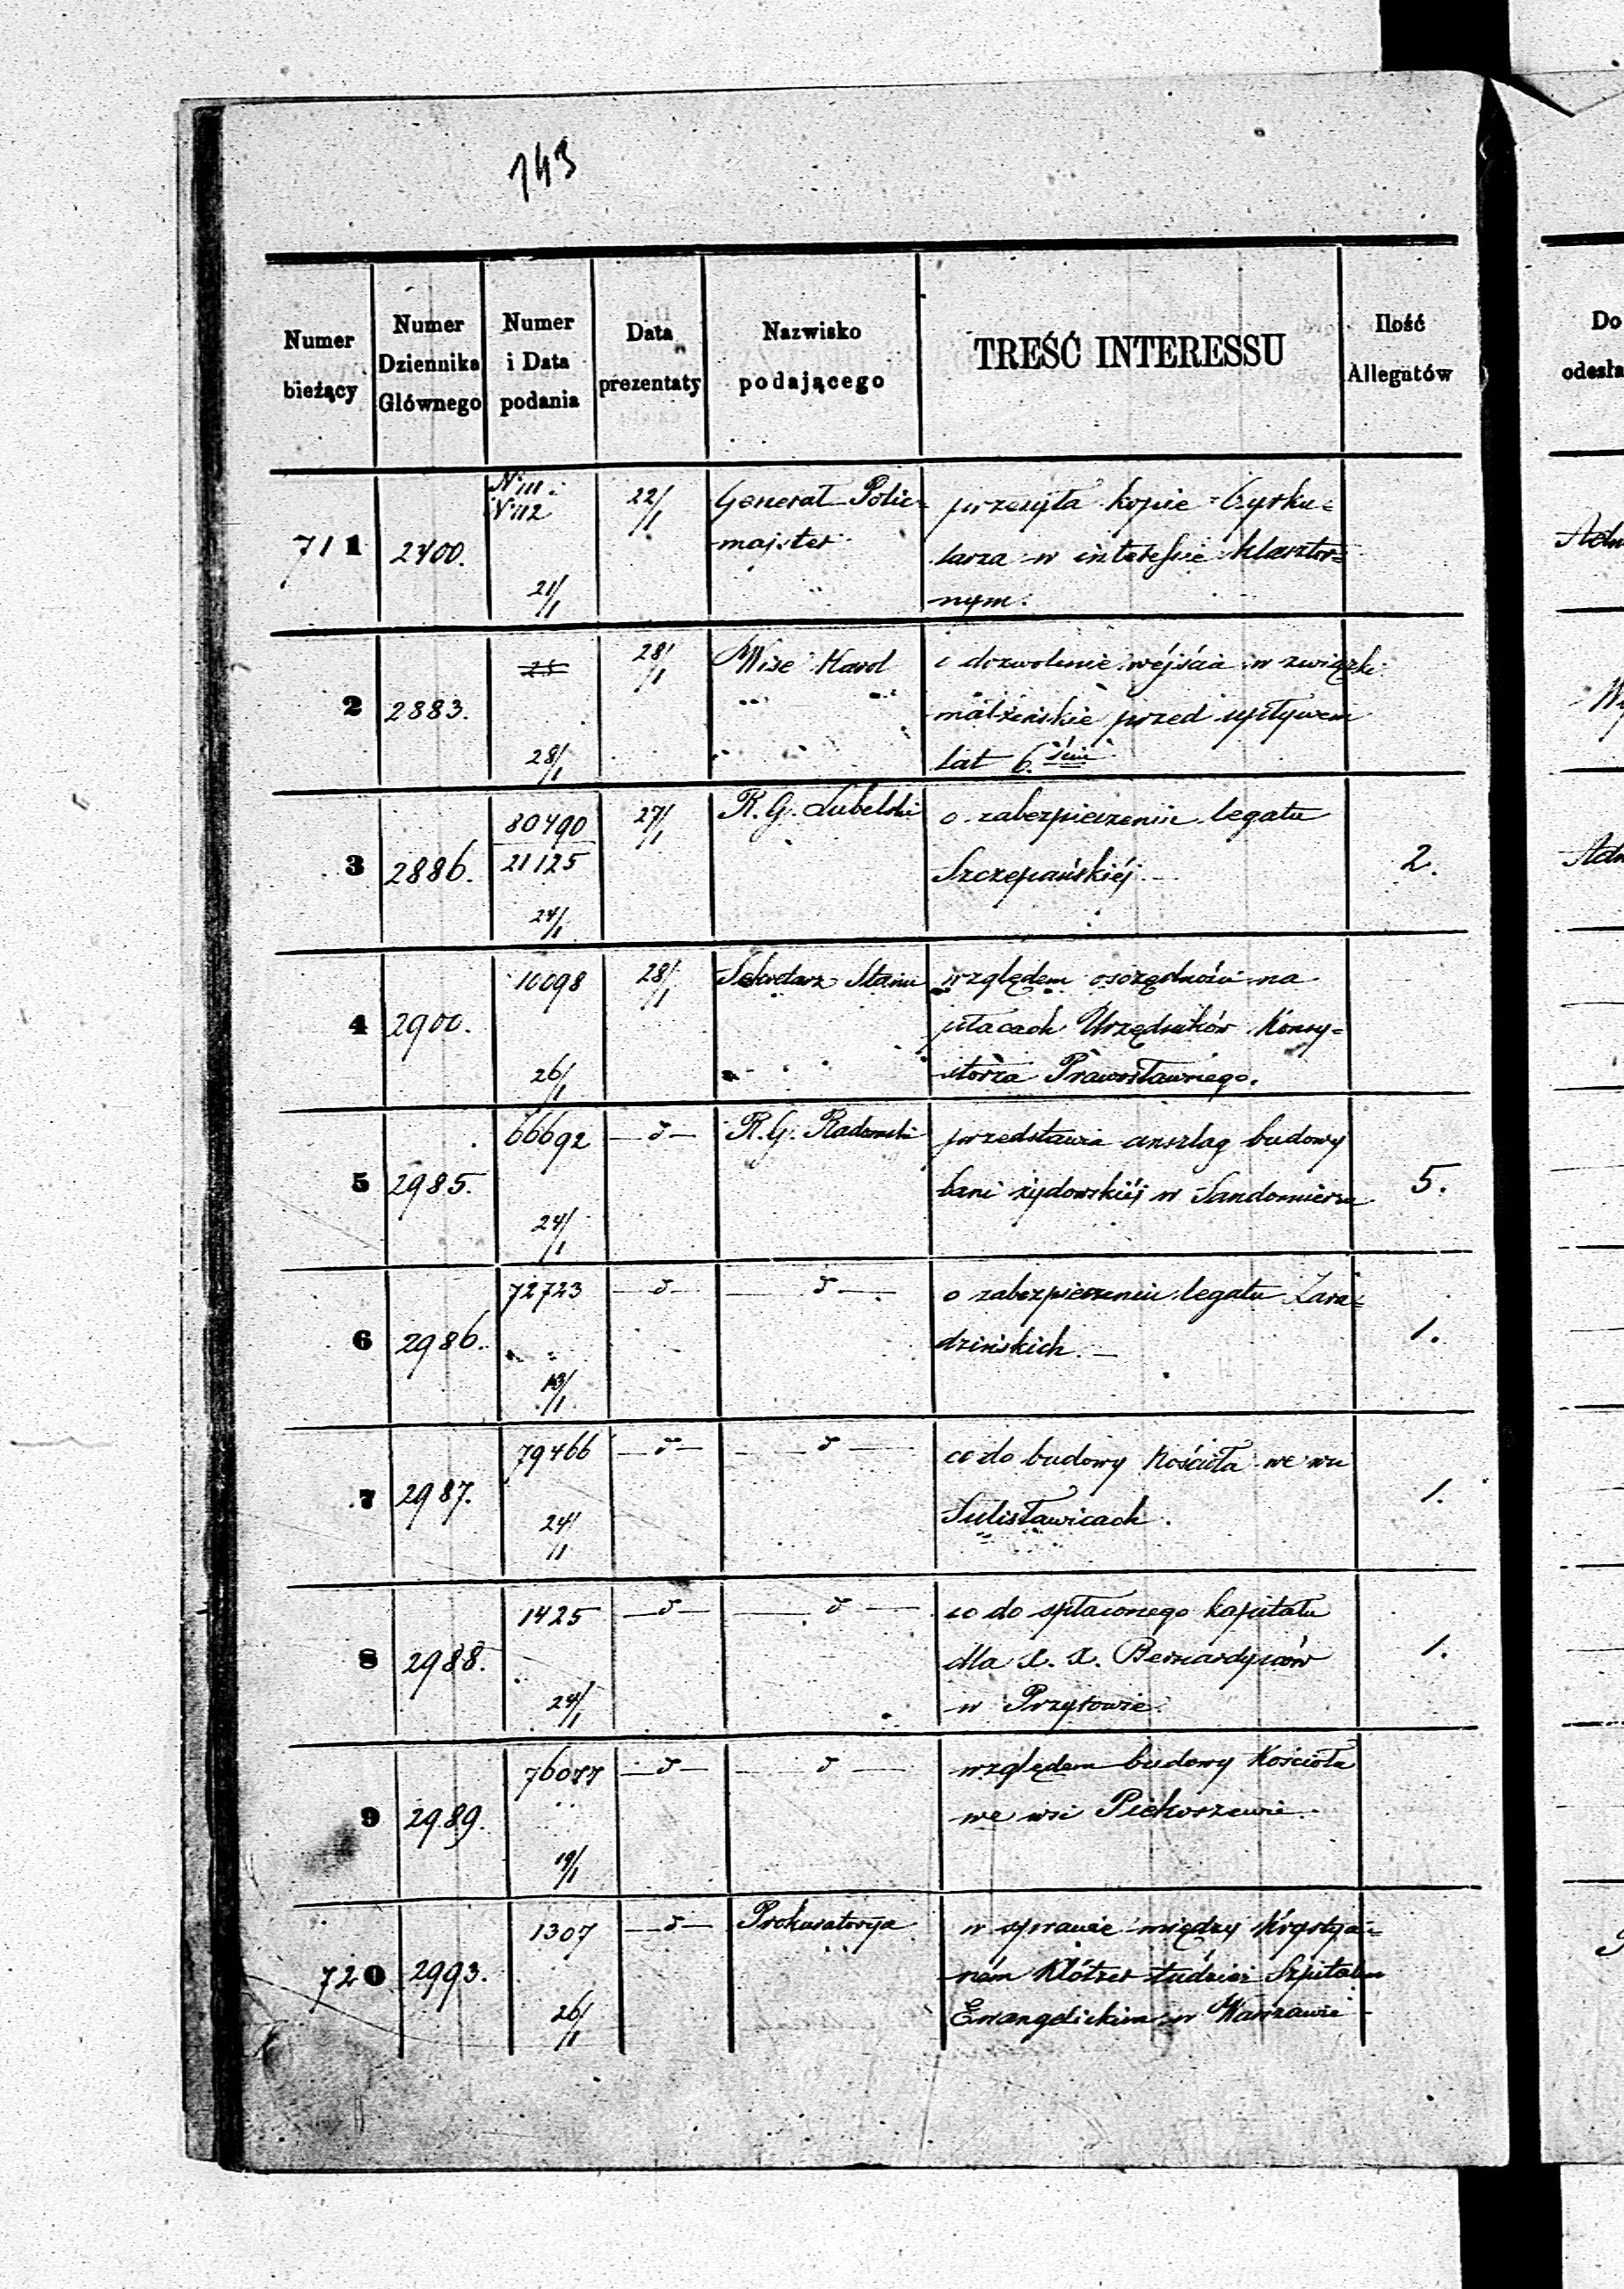 143
Numer bieżący
Numer Dziennika Głównego
Numer i Data podania
Data prezentaty
Nazwisko podającego
TREŚĆ INTERESSU
Ilość Allegatów
Do
odesła
711 2400. N 111. N 112 21/1 22/1 Generał Polic=
majster
przesyła kopie Cyrku=
larza w interesie klasztor=
nym.
Adm
2 2883. 28/1 28/1 Wize Karol
o dozwolenie wejścia w związki
małżeńskie przed upływem
lat 6.ściu
3 2886. 80490 21125 24/1 27/1 R. G. Lubelski
o zabezpieczeniu legatu
Szczepańskiéj. 2.
Adm
4 2900. 10098 26/1 28/1 Sekretarz Stanu
względem oszczędności na
płacach Urzędników Konsy=
storza Prawosławnego.
5 2985. 66692 24/1 —d— R. G. Radomski
przedstawia anszlag budowy
łani żydowskiéj w Sandomierzu 5.
6 2986. 72723 13/1 —d— —d—
o zabezpieczeniu legatu Zara=
dzińskich. 1.
7 2987. 79466 24/1 —d— —d—
co do budowy Kościoła we wsi
Sulisławicach. 1.
8 2988. 1425 24/1 —d— —d—
co do spłaconego kapitału
dla X. X. Bernardynów
w Przyrowie. 1.
9 2989. 19/1 —d— —d—
względem budowy Kościoła
we wsi Piekoszewie.
720 2993. 1307 26/1 —d— Prokuratorya
w sprawie między Krystya=
nem Klötzer tudzież Szpitalem
Ewangelickim w Warszawie